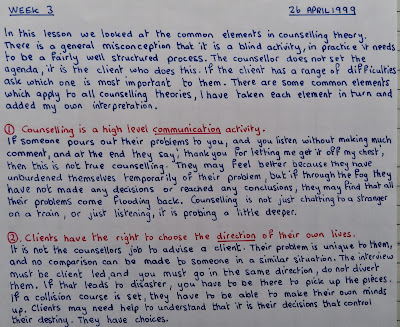 WEEK 3 26 APRIL 1999
In this lesson we looked at the common elements in counselling theory.
There is a general misconception that it is a blind activity, in practice it needs
to be a fairly well structured process. The counsellor does not set the
agenda, it is the client who does this. If the client has a range of difficulties
ask which one is most important to them. There are some common elements
which apply to all counselling theories, I have taken each element in turn and
added my own interpretation.
① Counselling is a high level communication activity.
If someone pours out their problems to you, and you listen without making much
comment, and at the end they say, 'thank you for letting me get it off my chest',
then this is not true counselling. They may feel better because they have
unburdened themselves temporarily of their problem, but if through the fog they
have not made any decisions or reached any conclusions, they may find that all
their problems come flooding back. Counselling is not just chatting to a stranger
on a train, or just listening, it is probing a little deeper.
② Clients have the right to choose the direction of their own lives.
It is not the counsellors job to advise a client. Their problem is unique to them,
and no comparison can be made to someone in a similar situation. The interview
must be client led, and you must go in the same direction, do not divert
them. If that leads to disaster, you have to be there to pick up the pieces.
If a collision course is set, they have to be able to make their own minds
up. Clients may need help to understand that it is their decisions that control
their destiny. They have choices.